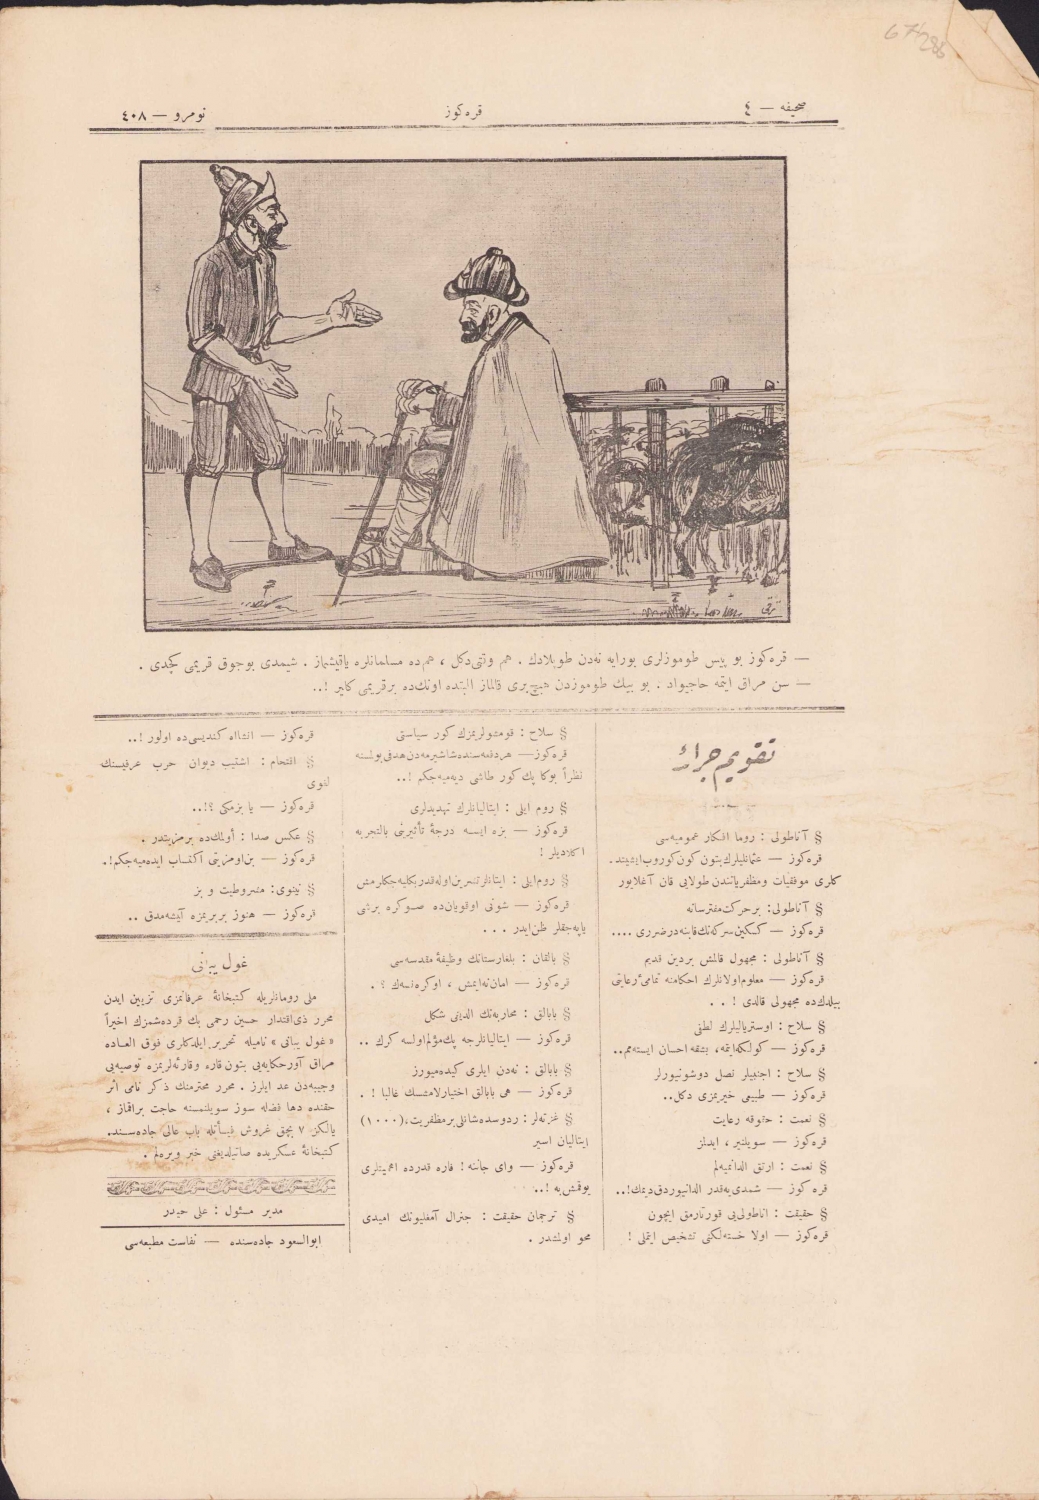 صحیفه — ٤
قره كوز
نومرو — ٤٠٨
— قره كوز بو پیس طوموزلری بورایه نه‌دن طوپلادك . هم وقتی دكل ، هم‌ده مسلمانلره یاقیشماز . شیمدی بوجوق قریمی كچدی .
— سن مراق ایتمه حاجیواد . بو بیك طوموزدن هیچ بری قالماز البته‌ده اونك‌ده برقریمی كلیر !..
تقویم جرائد
§ آناطولی : روما افكار عمومیه‌سی
قره كوز — عثمانلیلرك بتون كون كوروب ایشیتد .
كلری موفقیات ومظفریاتندن طولایی قان آغلایور
§ آناطولی: برحركت مفترسانه
قره كوز — كسكین سركه‌نك قابنه‌در ضرری ....
§ آناطولی : مجهول قالمش بردین قدیم
قره كوز — معلوم اولانلرك احكامنه تمامیٔ رعایتی
بیلدك‌ده مجهولی قالدی ! . .
§ سلاح : اوستریالیلرك لطفی
قره كوز — كولكه‌ایتمه، بشقه احسان ایسته‌مم..
§ سلاح : اجنبیلر نصل دوشونیورلر
قره كوز — طبیعی خیریمزی دكل..
§ نعمت : حقوقه رعایت
قره كوز — سویلنیر ، ایدلمز
§ نعمت : ارتق الدانمیه‌لم
قره كوز — شمدی‌یه‌قدر الدانیوردق دیمك!..
§ حقیقت : اناطولی‌یی قورتارمق ایچون
قره كوز — اولا خسته‌لكنی تشخیص ایتملی !
§ سلاح : قومشولریمزك كور سیاستی
قره كوز — هردفعه‌سنده‌شاشیرمه‌دن‌هدفی‌بولمسنه
نظراً بوكا پك كور طاشی دیه‌میه‌جكم !..
§ روم ایلی : ایتالیانلرك تهدیدلری
قره كوز — بزه ایسه درجهٔ تأثیرینی بالتجربه
اكلادیلر !
قره كوز — شونی اوقویان‌ده صوكره برشی
یاپه‌جقلر ظن‌ایدر . . .
§ بالقان : بلغارستانك وظیفهٔ مقدسه‌سی
قره كوز — امان نه‌ایمش ، اوكره‌نسه‌ك ؟ .
§ بابالق : محاربه‌نك الدینی شكل
قره كوز — ایتالیانلرجه پك‌مؤلم‌اولسه كرك ..
§ بابالق : نه‌دن ایلری كیده‌میورز
قره كوز — هی بابالق اختیارلامشسك غالبا ! .
§ غزته‌لر : ردوسده‌شانلی‌برمظفریت، (١٠٠٠)
ایتالیان اسیر
قره كوز — وای جاننه ! فاره قدرده اهمیتلری
یوقمش‌یه !..
§ ترجمان حقیقت : جنرال آمغلیونك امیدی
محو اولمشدر .
قره كوز — انشااه كندیسی‌ده اولور !..
§ اقتحام : اشتیب دیوان حرب عرفیسنك
لغوی
قره كوز — یا بزمكی ؟!..
§ عكس صدا : أولمك‌ده برمزیتدر .
قره كوز — بن‌اومزیتی اكتساب ایده‌میه‌جكم!.
§ نینوی: مشروطیت و بز
قره كوز — هنوز بربریمزه آلیشه‌مدق ..
غول یبانی
ملی رومانلریله كتبخانهٔ عرفانمزی تزیین ایدن
محرر ذی‌اقتدار حسین رحمی بك قرده‌شمزك اخیراً
« غول یبانی » نامیله تحریر ایلدكلری فوق العاده
مراق آور حكایه‌یی بتون قاره وقارئه‌لریمزه توصیه‌یی
وجیبه‌دن عد ایلرز . محرر محترمنك ذكر نامی اثر
حقنده دها فضله سوز سویلنمسنه حاجت براقماز ،
یالكز ٧ بچق غروش فیأتله باب عالی جاده‌سنده
كتبخانهٔ عسكریده صاتیلدیغنی خبر ویره‌لم .
مدیر مسئول : علی حیدر
ابوالسعود جاده‌سنده — نفاست مطبعه‌سی